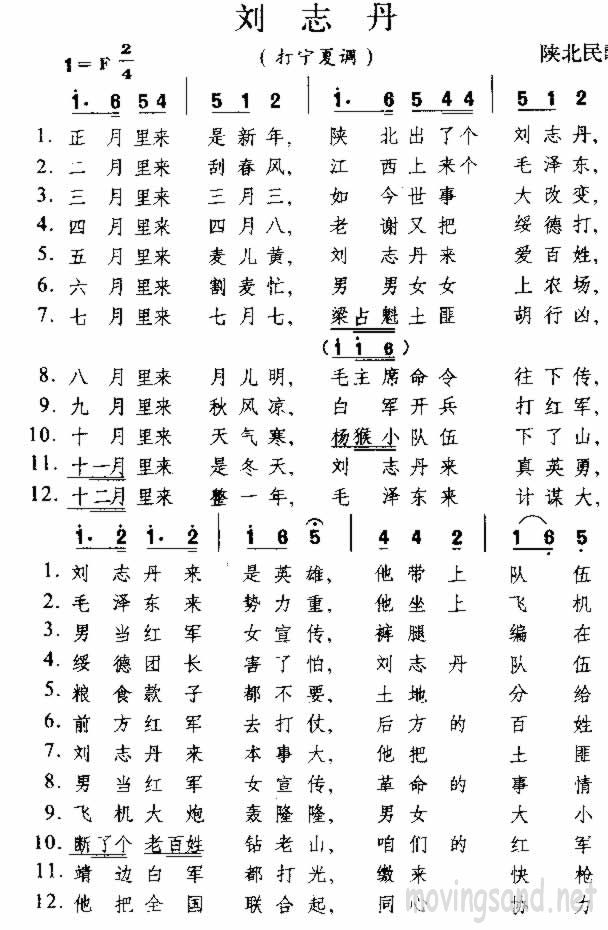 刘志丹
(打宁夏调)
1=F 2/4
陕北民
1· 6 54 | 5 1 2 | 1· 6 5 44 | 5 1 2
1. 正月里来 是新年， 陕北出了个 刘志丹，
2. 二月里来 刮春风， 江西上来个 毛泽东，
3. 三月里来 三月三， 如今世事 大改变，
4. 四月里来 四月八， 老谢又把 绥德打，
5. 五月里来 麦儿黄， 刘志丹来 爱百姓，
6. 六月里来 割麦忙， 男男女女 上农场，
7. 七月里来 七月七， 梁占魁土匪 胡行凶，
(1 1 6)
8. 八月里来 月儿明， 毛主席命令 往下传，
9. 九月里来 秋风凉， 白军开兵 打红军，
10. 十月里来 天气寒， 杨猴小队伍 下了山，
11. 十一月里来 是冬天， 刘志丹来 真英勇，
12. 十二月里来 整一年， 毛泽东来 计谋大，
1· 2 1· 2 | 1 6 5 | 4 4 2 | 1 6 5
1. 刘志丹来 是英雄， 他带上 队伍
2. 毛泽东来 势力重， 他坐上 飞机
3. 男当红军 女宣传， 裤腿 编在
4. 绥德团长 害了怕， 刘志丹 队伍
5. 粮食款子 都不要， 土地 分给
6. 前方红军 去打仗， 后方的 百姓
7. 刘志丹来 本事大， 他把 土匪
8. 男当红军 女宣传， 革命的 事情
9. 飞机大炮 轰隆隆， 男女 大小
10. 断了个老百姓 钻老山， 咱们的 红军
11. 靖边白军 都打光， 缴来 快枪
12. 他把全国 联合起， 同心 协力
movingsand.net